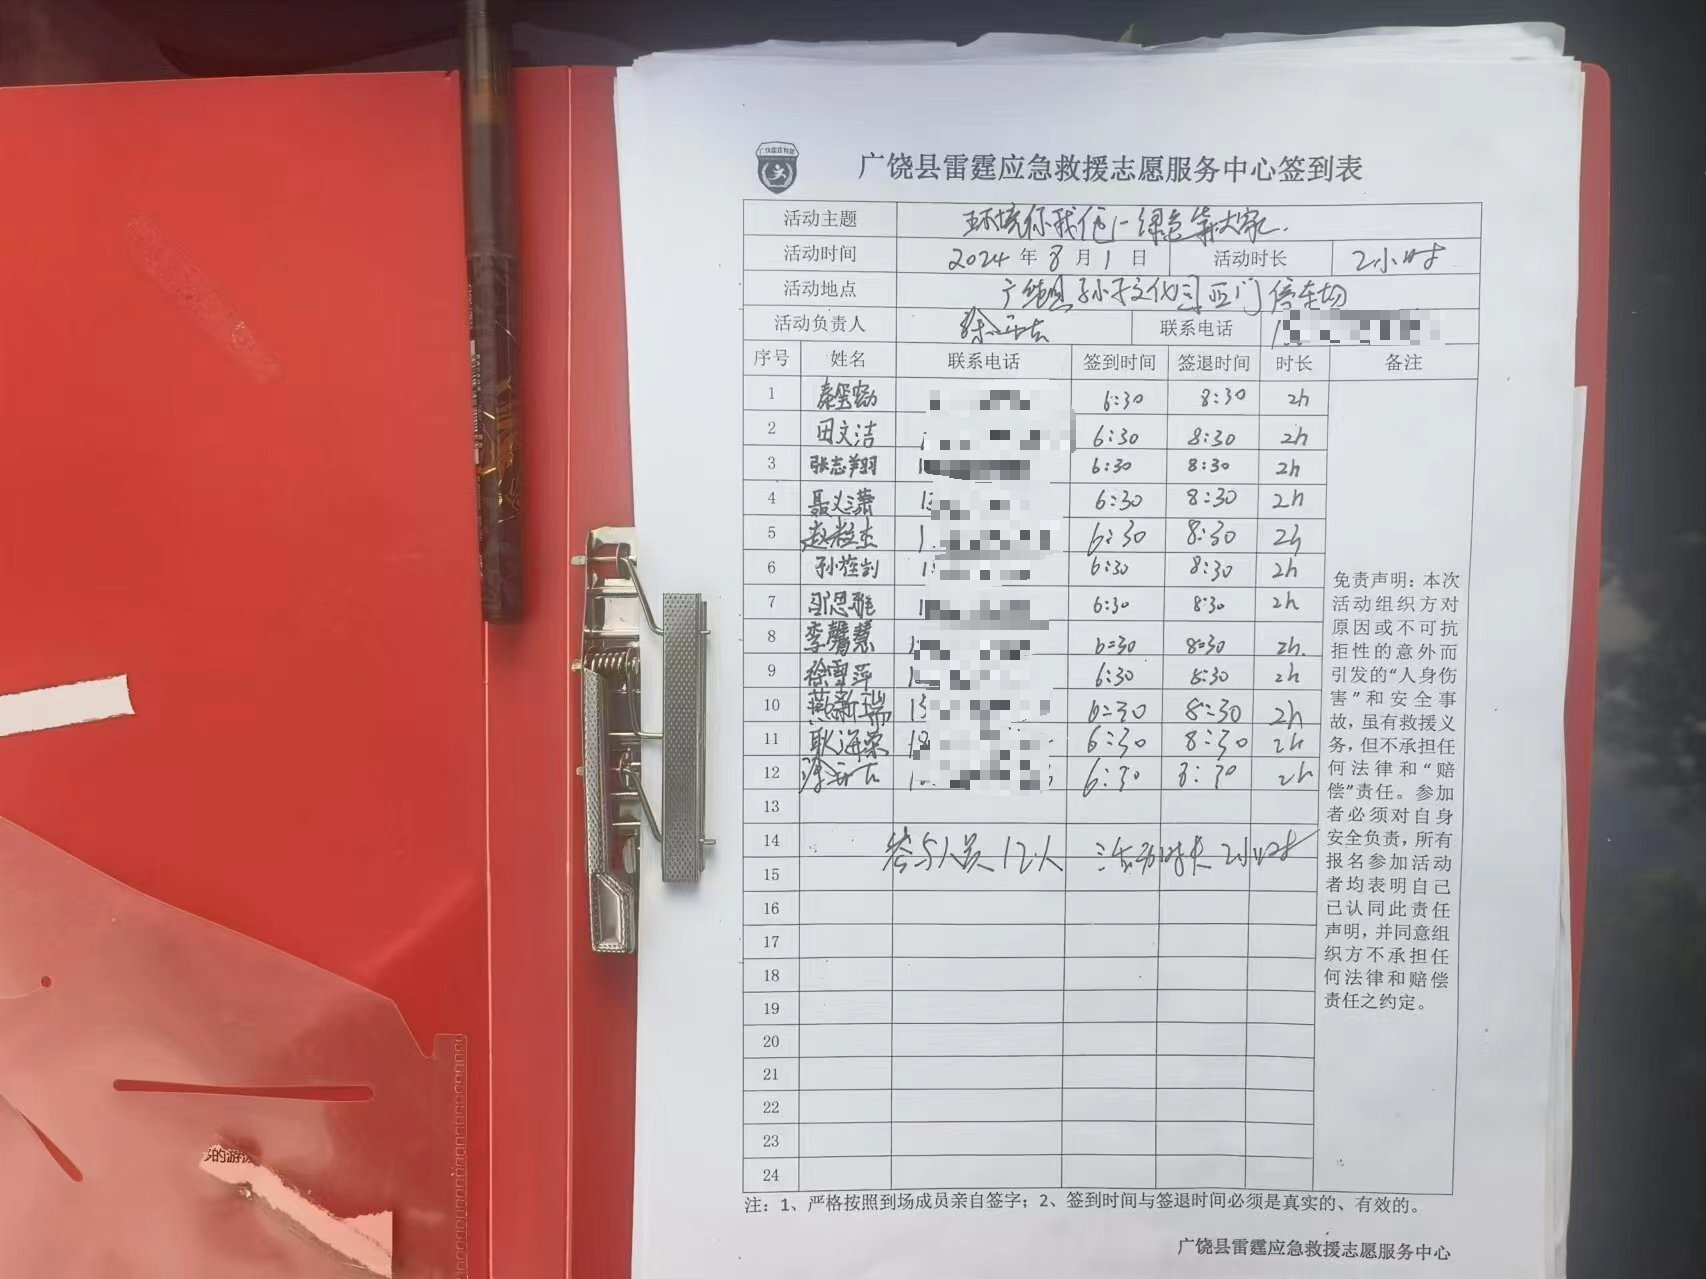 广饶县雷霆应急救援志愿服务中心签到表
活动主题 环境你我他 绿色靠大家.
活动时间 2024年8月1日 活动时长 2小时
活动地点 广饶县孙子文化园西门停车场
活动负责人 联系电话
序号 姓名 联系电话 签到时间 签退时间 时长 备注
1 6:30 8:30 2h
2 田文洁 6:30 8:30 2h
3 张志翔 6:30 8:30 2h
4 聂义潇 13 6:30 8:30 2h
5 1 6:30 8:30 2h
6 1 6:30 8:30 2h
7 1 6:30 8:30 2h
8 李馨慧 6:30 8:30 2h.
9 徐雪萍 6:30 8:30 2h
10 燕新瑞 13 6:30 8:30 2h
11 耿海荣 6:30 8:30 2h
12 6:30 8:30 2h
13
14
参与人员12人 活动时长2小时
15
16
17
18
19
20
21
22
23
24
免责声明：本次
活动组织方对
原因或不可抗
拒性的意外而
引发的“人身伤
害”和安全事
故，虽有救援义
务，但不承担任
何法律和“赔
偿”责任。参加
者必须对自身
安全负责，所有
报名参加活动
者均表明自己
已认同此责任
声明，并同意组
织方不承担任
何法律和赔偿
责任之约定。
注：1、严格按照到场成员亲自签字；2、签到时间与签退时间必须是真实的、有效的。
广饶县雷霆应急救援志愿服务中心
的游